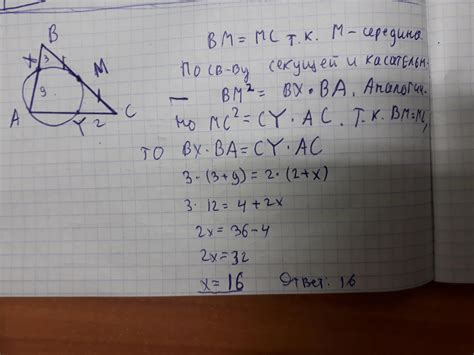 B
X
3
M
9
A
Y
2
C
BM = MC т.к. M - середина
По св-ву секущей и касательн-
BM² = BX · BA. Аналогич-
но MC² = CY · AC. Т.к. BM=MC,
то BX · BA = CY · AC
3 · (3+9) = 2 · (2+x)
3 · 12 = 4 + 2x
2x = 36 - 4
2x = 32
x = 16
Ответ: 16